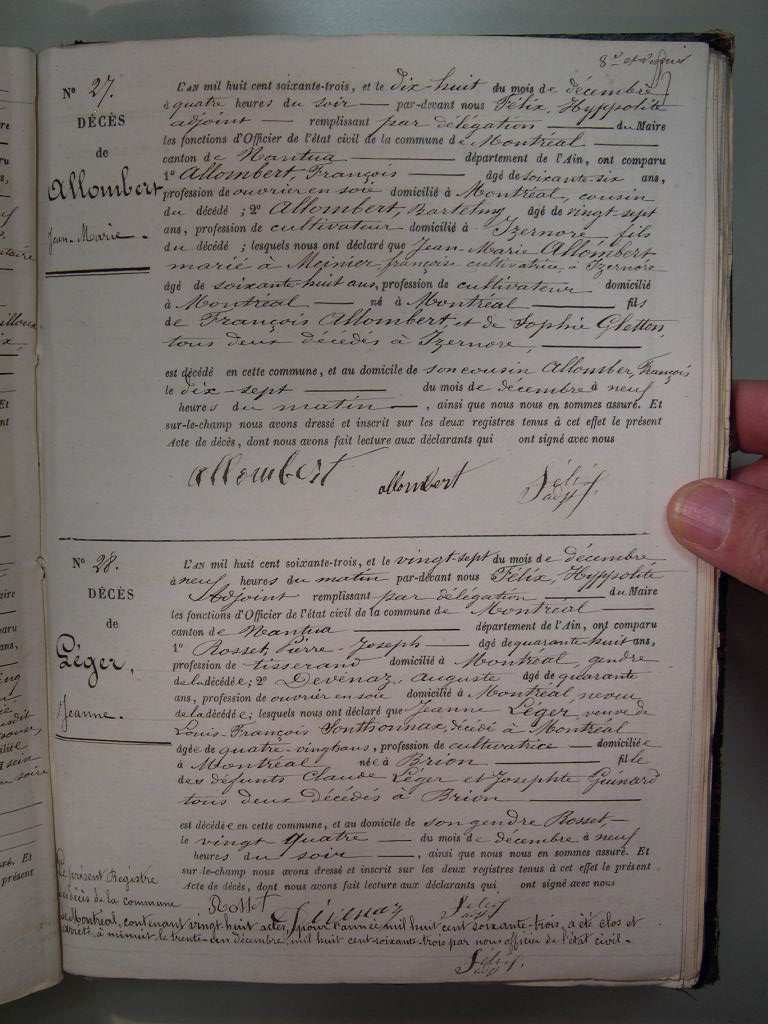 8e et dernier
N° 27.
DÉCÈS
de
Allombert
Jean-Marie.
L'AN mil huit cent soixante-trois, et le dix-huit du mois de décembre
à quatre heures du soir — par-devant nous Félix, Hyppolite
adjoint — remplissant par délégation — du Maire
les fonctions d'Officier de l'état civil de la commune de Montréal —
canton de Nantua — département de l'Ain, ont comparu
1° Allombert, François — âgé de soixante-six ans,
profession de ouvrier en soie domicilié à Montréal, cousin
du décédé ; 2° Allombert, Bartelmy âgé de vingt-sept
ans, profession de cultivateur domicilié à Izernore, fils
du décédé ; lesquels nous ont déclaré que Jean-Marie Allombert
marié à Meinier, françoise cultivatrice à Izernore
âgé de soixante-huit ans, profession de cultivateur domicilié
à Montréal — né à Montréal — fils
de François Allombert, et de Sophie Gletton,
tous deux décédés à Izernore, —
est décédé en cette commune, et au domicile de son cousin Allomber, François
le dix-sept — du mois de décembre à neuf
heures du matin —, ainsi que nous nous en sommes assuré. Et
sur-le-champ nous avons dressé et inscrit sur les deux registres tenus à cet effet le présent
Acte de décès, dont nous avons fait lecture aux déclarants qui ont signé avec nous
allombert allombert Félix
adjt
N° 28.
DÉCÈS
de
Léger,
Jeanne.
L'AN mil huit cent soixante-trois, et le vingt-sept du mois de décembre
à neuf heures du matin par-devant nous Félix, Hyppolite
Adjoint remplissant par délégation — du Maire
les fonctions d'Officier de l'état civil de la commune de Montréal —
canton de Nantua — département de l'Ain, ont comparu
1° Rosset, Pierre-Joseph — âgé de quarante-huit ans,
profession de tisserand domicilié à Montréal, gendre
de la décédée; 2° Devenaz, Auguste âgé de quarante
ans, profession de ouvrier en soie domicilié à Montréal, neveu
de la décédée; lesquels nous ont déclaré que Jeanne Léger, veuve de
Louis-François Sonthonnax, décédé à Montréal
âgée de quatre-vingt ans, profession de cultivatrice — domiciliée
à Montréal née à Brion — fille
des défunts Claude Léger et Josephte Guinard
tous deux décédés à Brion —
est décédée en cette commune, et au domicile de son gendre Rosset —
le vingt quatre — du mois de décembre à neuf
heures du soir —, ainsi que nous nous en sommes assuré. Et
sur-le-champ nous avons dressé et inscrit sur les deux registres tenus à cet effet le présent
Acte de décès, dont nous avons fait lecture aux déclarants qui ont signé avec nous
Rosset Dévenaz Félix
adjt
Le présent Registre
des décès de la commune
de Montréal, contenant vingt-huit actes, pour l'année mil huit cent soixante-trois, a été clos et
arrêté à minuit, le trente-un décembre, mil huit cent soixante-trois par nous officier de l'état civil.
Félix
adjt